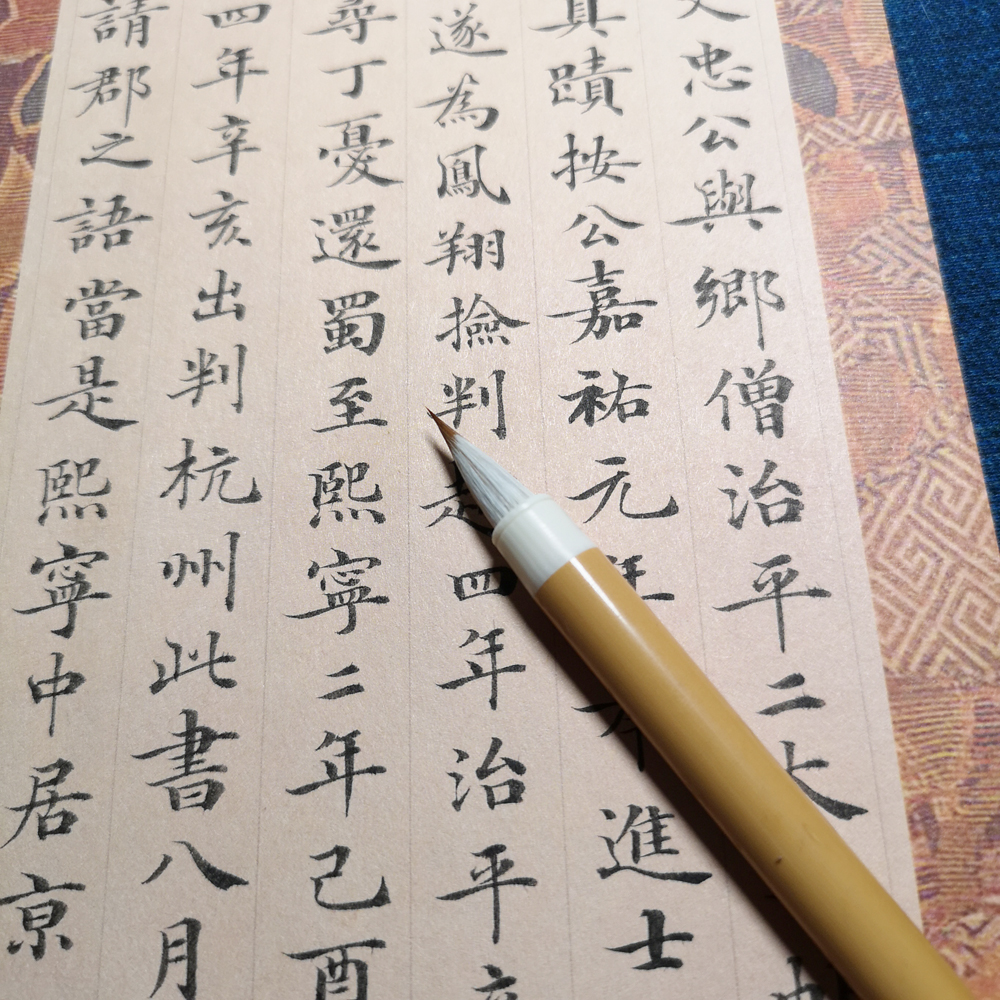 文忠公與鄉僧治平二大
真蹟按公嘉祐元年進士
遂為鳳翔撿判四年治平
尋丁憂還蜀至熙寧二年己酉
四年辛亥出判杭州此書八月
請郡之語當是熙寧中居京